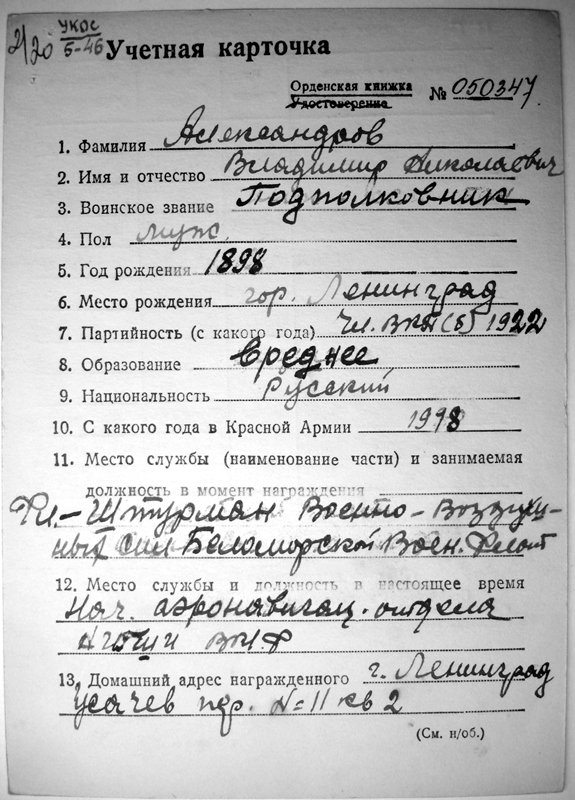 2/20 УКОС
5-46
Учетная карточка
Орденская книжка
Удостоверение
№ 050347
1. Фамилия Александров
2. Имя и отчество Владимир Николаевич
3. Воинское звание Подполковник
4. Пол муж.
5. Год рождения 1898
6. Место рождения гор. Ленинград
7. Партийность (с какого года) Чл. ВКП(б) 1922
8. Образование среднее
9. Национальность Русский
10. С какого года в Красной Армии 1918
11. Место службы (наименование части) и занимаемая
должность в момент награждения
Фл-Штурман Военно-Воздуш-
ных сил Беломорской Воен. Флот
12. Место службы и должность в настоящее время
Нач. аэронавигац. отдела
ВМФ
13. Домашний адрес награжденного г. Ленинград
Усачев пер. N=11 кв 2
(См. н/об.)